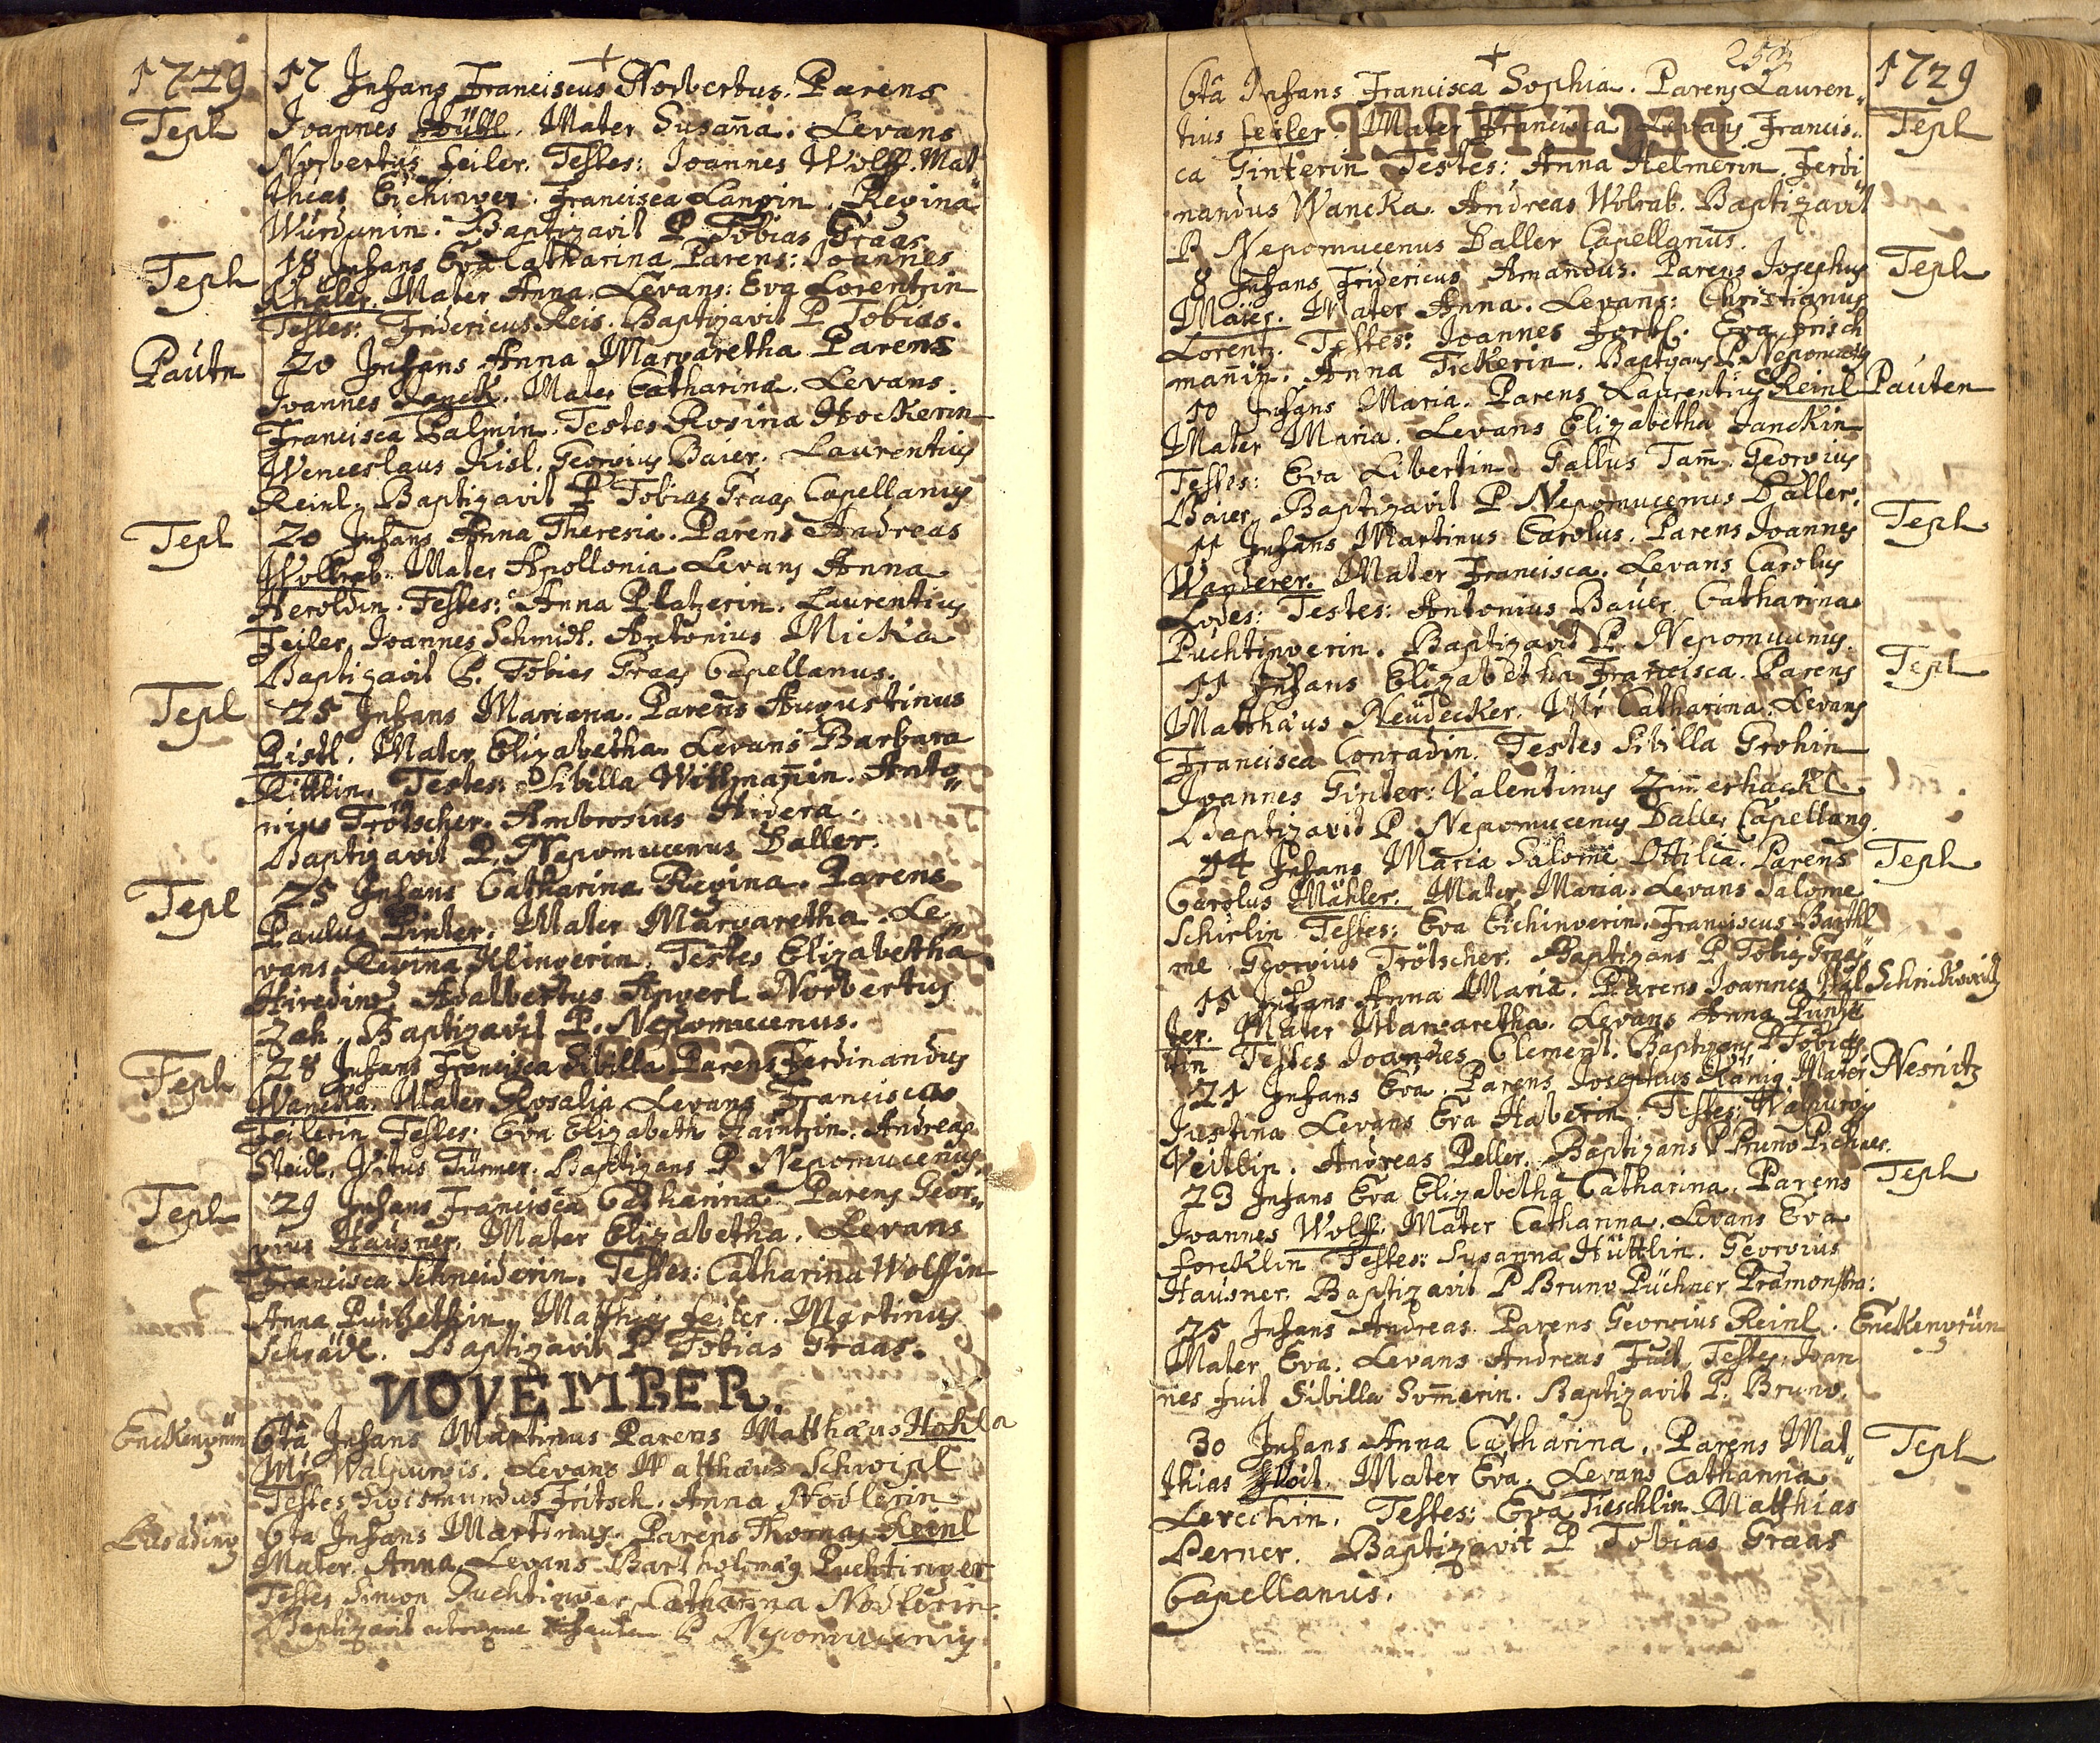 1729
17 Infans Franciscus Norbertus. Parens
Tepl
Joannes Hüttl. Mater Susaña. Levans
Norbertus Feiler. Testes: Joannes Wolff. Mat
theas Eichinger. Francisca Langin. Regina
Baptizavit P. Tobias Graas
Tepl
18 Infans Eva Catharina Parens: Joannes
Mater Anna. Levans: Eva Lorentzin
Testes: Fridericus Reis. Baptizavit P. Tobias.
Pautn
20 Infans Anna Margaretha Parens
Joannes Janck. Mater Catharina. Levans
Francisca Palmin. Testes Rosina Hockerin
Wenceslaus Kisl. Georgius Baier. Laurentius
Reinl. Baptizavit P Tobias Graas Capellanus
Tepl
20 Infans Anna Theresia. Parens Andreas
Wollrab. Mater Apollonia Levans Anna
Heroldin. Testes: Anna Platzerin. Laurentius
Feiler, Joannes Schmidl. Antonius Micka
Baptizavit P. Tobias Graas Capellanus.
Tepl
25 Infans Mariana. Parens Augustinus
Ristl. Mater Elizabetha. Levans Barbara
Kittlin. Testes: Sibilla Wittmañin. Anto„
nius Trötscher. Ambrosius
Baptizavit P. Nepomucenus Daller.
Tepl
25 Infans Catharina Regina. Parens
Paulus Ginter. Mater Margaretha. Le„
vans Regina Klingerin. Testes Elizabetha
Adalbertus Norbertus
Zah. Baptizavit P. Nepomucenus.
Tepl
28 Infans Francisca Sibilla Parens Ferdinandus
Wancka. Mater Rosalia Levans Francisca
Feilerin. Testes: Eva Elizabeth Andreas
Steidl. Vitus Türmer. Baptizans P Nepomucenus.
Tepl
29 Infans Francisca Catharina Parens Geor„
gius Hausner. Mater Elizabetha. Levans
Francisca Schneiderin. Testes: Catharina Wolffin
Anna Mathias Feiler. Martinus
Schrädl. Baptizavit P Tobias Graas.
NOVEMBER.
Enckengrün
6ta Infans Martinus Parens Matthäus Hohla
Mr Walpurgis. Levans Matthäus Schwizl
Testes Sigismundus Fritsch. Anna Nodlerin
6ta Infans Martinus. Parens Thomas Reinl
Mater Anna. Levans Bartholmäg Puchtinger
Testes Simon Puchtinger Catharina Nodlerin.
Baptizavit utrumque Infantem P Nepomucenus
253
1729
6ta Infans Francisca Sophia. Parens Lauren„
Tepl
tius Feiler. Mater Francisca. Levans Francis„
ca Ginterin Testes: Anna Helmerin. Ferdi
nandus Wancka. Andreas Wolrab. Baptizavit
P Nepomucenus Daller Capellanus.
Tepl
8 Infans Fridericus Amandus. Parens Josephus
Maier. Mater Anna. Levans: Christianus
Lorentz. Testes: Joannes Forkl. Eva Frisch
mañin. Anna Fickerin. Baptizans P Nepomuc
10 Infans Maria. Parens Laurentius Reinl
Pauten
Mater Maria. Levans Elizabetha Janckin
Testes: Eva Libertin. Gallus Tam̃. Georgius
Baier. Baptizavit P Nepomucenus Daller.
Tepl
11 Infans Martinus Carolus. Parens Joannes
Wanderer. Mater Francisca. Levans Carolus
Lodes: Testes: Antonius Bauer. Catharina
Puchtingerin. Baptizavit P. Nepomucenus.
Tepl
11 Infans Elizabetha Francisca. Parens
Matthäus Neudecker. Mr Catharina. Levans
Francisca Conradin. Testes Sibilla Grohin
Joannes Ginter: Valentinus Zim̃erhackl
Baptizavit P Nepomucenus Daller Capellang.
Tepl
14 Infans Maria Salome Ottilia. Parens
Carolus Mähler. Mater Maria. Levans Salome
Schirlin Testes: Eva Eichingerin. Franciscus Barthl
me Georgius Trötscher. Baptizans P Tobias Graas
15 Infans Anna Maria. Parens Joannes Hal
ter. Mater Margaretha. Levans Anna
tin Testes Joannes Clement. Baptizans P Tobias
21 Infans Eva. Parens Josephus König. Mater
Nesnitz
Justina Levans Eva Haberin. Testes: Walpurgis
Veitlin. Andreas Peller. Baptizans P Bruno Pichner.
Tepl
23 Infans Eva Elizabetha Catharina. Parens
Joannes Wolff Mater Catharina. Levans Eva
Forcklin Testes: Susanna Hüttlin. Georgius
Hausner. Baptizavit P Bruno Püchner Præmonstra:
25 Infans Andreas. Parens Georgius Reinl.
Enckengrün
Mater Eva. Levans Andreas Fuit Testes: Joan
nes Fuit Sibilla Som̃erin. Baptizavit P. Bruno.
Tepl
30 Infans Anna Catharina. Parens Mat„
thias Mater Eva. Levans Catharina
Testes: Eva Tieschlin Matthias
Perner. Baptizavit P Tobias Graas
Capellanus.